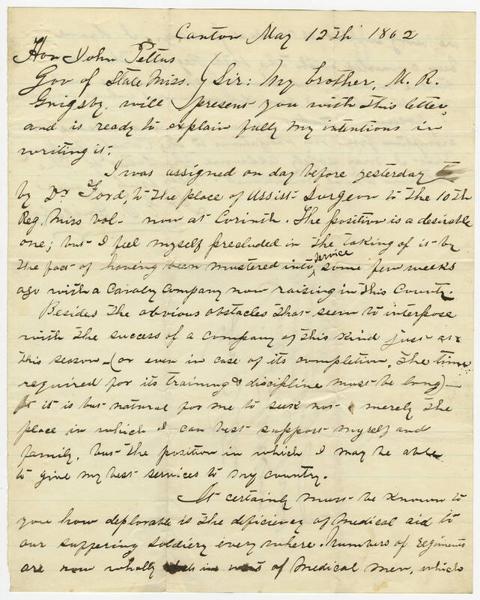 Canton May 12th 1862
Hon John Pettus
Gov of State Miss. } Sir: My brother, M. R.
Grigsby, will present you with this letter,
and is ready to explain fully my intentions in
writing it.
I was assigned on day before yesterday
by Dr Ford, to the place of Assist. Surgeon to the 10th
Reg. Miss Vol. now at Corinth. The position is a desirable
one; but I feel myself precluded in the taking of it by
the fact of having been mustered into service some few weeks
ago with a Cavalry Company now raising in this County.
Besides the obvious obstacles that seem to interpose
with the success of a company of this kind just at
this season—(or even in case of its completion, the time
required for its training & discipline must be long)—
it is but natural for me to seek not merely the
place in which I can best support myself and
family, but the position in which I may be able
to give my best services to my country.
It certainly must be known to
you how deplorable is the deficiency of medical aid to
our suffering soldiery every where. Numbers of regiments
are now wholly in want of medical men, which